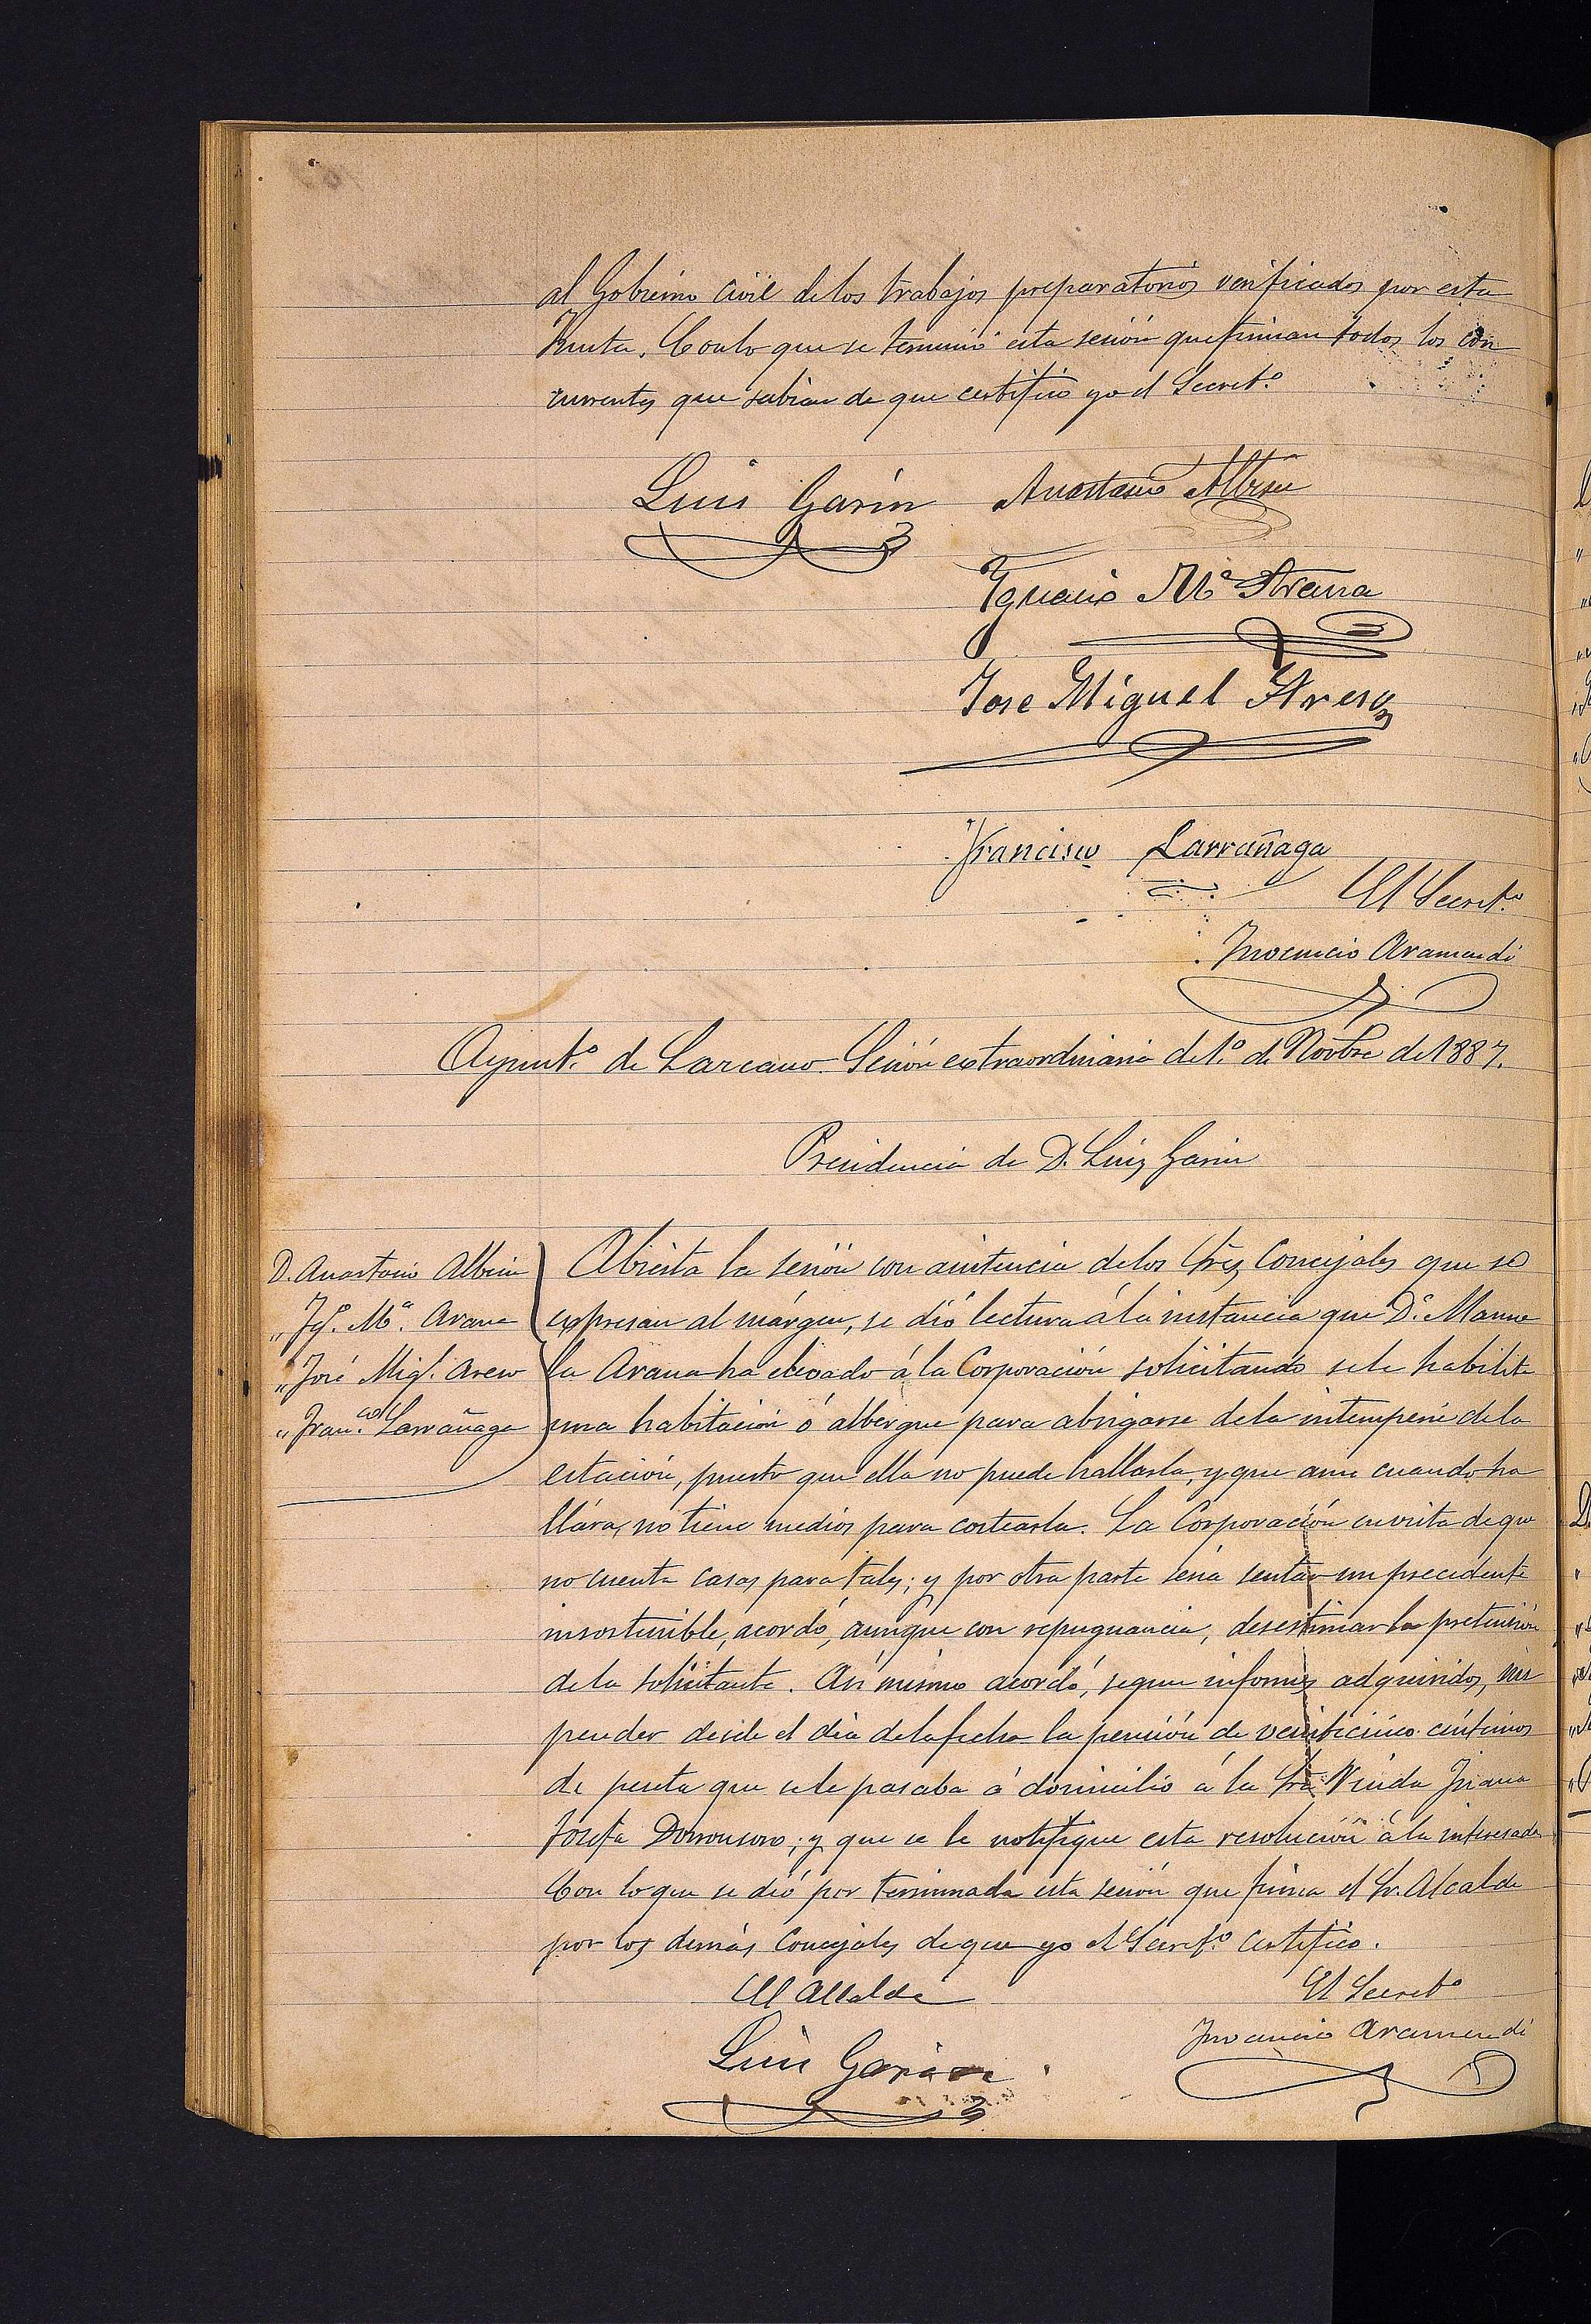 al Gobierno civil de los trabajos preparatorios verificados por esta
Junta. Con lo que se terminó esta sesión que firman todos los con
currentes que sabian de que certifico yo el Secret.º
Luis Garín Anastasio Albisu
Ignacio M.ª Arana
Jose Miguel Areso
Francisco Larrañaga
El Secret.º
Inocencio Aramendi
Ayunt.º de Lazcano. Sesión extraordinaria de 1.º de Novbre de 1887.
Presidencia de D. Luis Garin
D. Anastasio Albisu
" Ig.º M.ª Arana
" José Mig.l Areso
" Fran.co Larrañaga
Abierta la sesión con asistencia de los Sres Concejales que se
expresan al márgen, se dió lectura á la instancia que D.ª Manue
la Arana ha elevado á la Corporación solicitando se le habilite
una habitación ó albergue para abrigarse de la intemperie de la
estación, puesto que ella no puede hallarla, y que aun cuando ha
llára, no tiene medios para costearla. La Corporación en vista de que
no cuenta casas para tales; y por otra parte seria sentar un precedente
insostenible, acordó, aunque con repugnancia, desestimar la pretensión
de la solicitante. Asi mismo acordó, segun informes adquiridos, sus
pender desde el dia de la fecha la pensión de veinticinco céntimos
de peseta que se le pasaba á domicilio á la Sra Viuda Juana
Josefa Dorronsoro; y que se le notifique esta resolución á la interesada
Con lo que se dió por terminada esta sesión que firma el Sr. Alcalde
por los demás Concejales de que yo el Secret.º certifico.
El Alcalde
El Secret.º
Inocencio Aramendi
Luis Garín